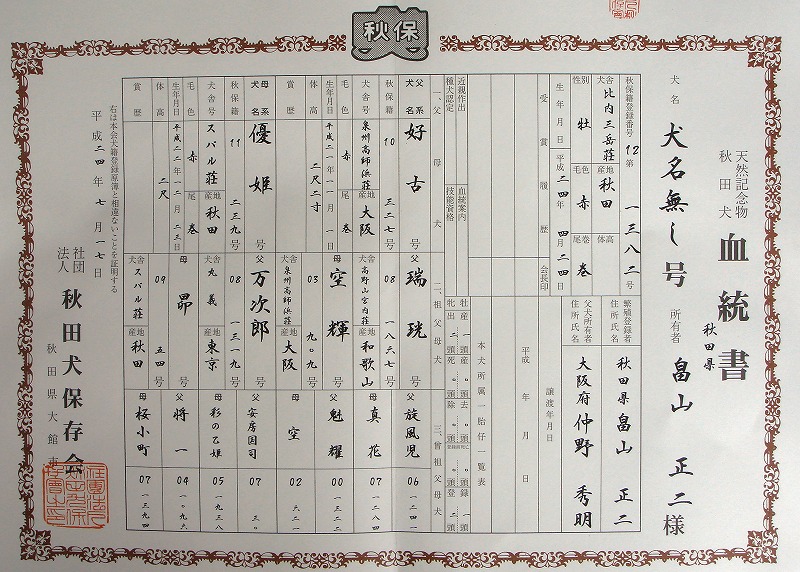 秋保
天然記念物
秋田犬
血統書
犬名
犬名無し号
所有者
秋田県
畠山 正二様
秋保籍登録番号 12 第 一三八二号
犬舎号 比内三岳荘 産地 秋田 体高
性別 牡 毛色 赤 尾巻 巻
生年月日 平成二四年四月二四日
受賞履歴
会長印
繁殖登録者
住所氏名
秋田県 畠山 正二
父犬所有者
住所氏名
大阪府 仲野 秀明
譲渡年月日
平成 年 月 日
本犬所属一胎仔一覧表
近親作出
種犬認定
血統案内
技能資格
一、父母犬
二、祖父母犬
三、曾祖父母犬
父系
犬名
好古号
秋保籍 10 三二七号
犬舎号 泉州高師浜荘 産地 大阪
毛色 赤 尾 巻
生年月日 平成二一年一一月一日
体高 二尺二寸
賞歴
母系
犬名
優姫号
秋保籍 11 二三九号
犬舎号 スバル荘 産地 秋田
毛色 赤 尾 巻
生年月日 平成二二年一二月二三日
体高 二尺
賞歴
父 瑞珖号
08 一八六七号
犬舎 高野山宮内荘 産地 和歌山
母 空輝号
03 九〇九号
犬舎 泉州高師浜荘 産地 大阪
父 万次郎号
08 一三一九号
犬舎 丸義 産地 東京
母 昴号
09 五四号
犬舎 スバル荘 産地 秋田
父 旋風児 06 一二四一
母 真花 07 一二八四
父 魁耀 00 一三二二
母 空 02 六二一
父 安房国司 07 三〇
母 彩の乙姫 05 一九三八
父 将一 04 一〇九六
母 桜小町 07 一三九四
右は本会犬籍登録原簿と相違ないことを証明する
平成二四年七月一七日
社団
法人
秋田犬保存会
秋田県大館市